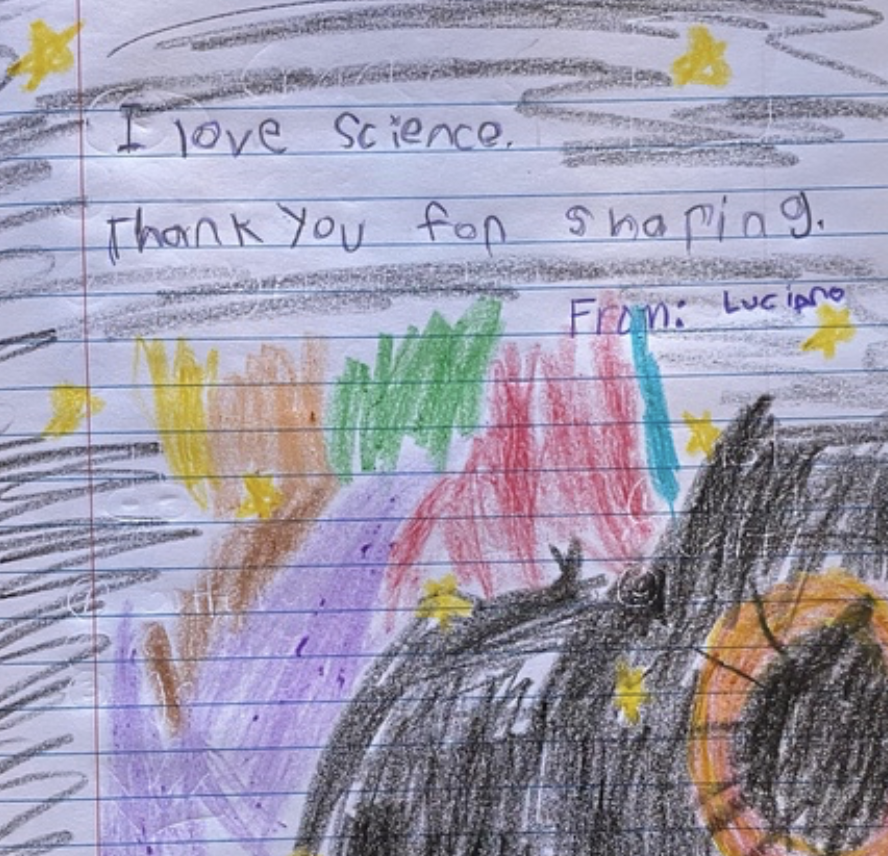 I love Science.
Thank you for shaping.
From: Luciano